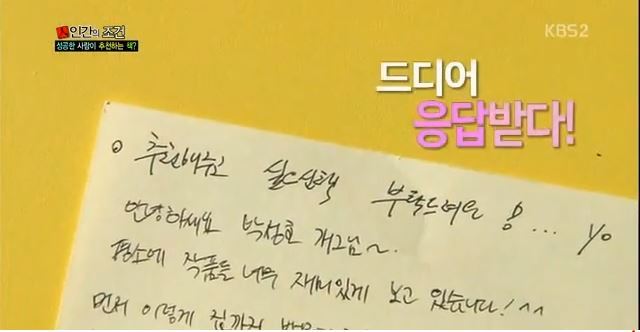 인간의 조건
성공한 사람이 추천하는 책?
KBS2
드디어
응답받다!
추천해주고 싶은 책 부탁드려요 ! ... yo
안녕하세요 박성호 개그맨~.
평소에 작품들 너무 재미있게 보고 있습니다! ^^
먼저 이렇게